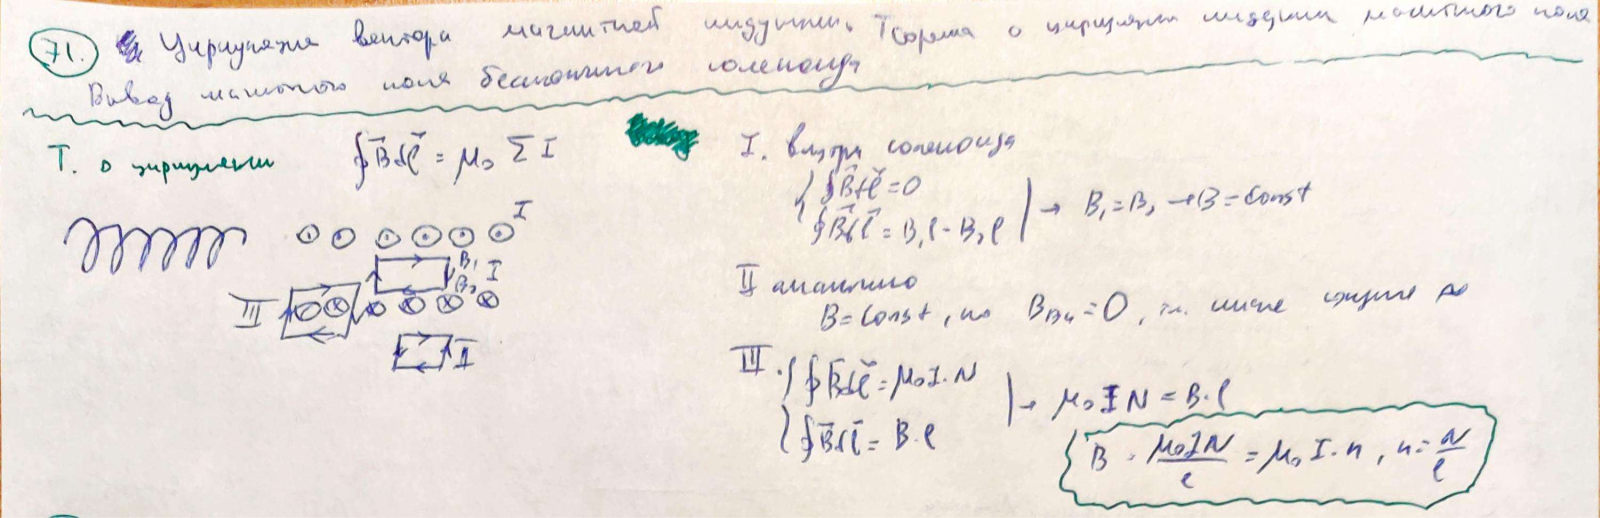 71. Циркуляция вектора магнитной индукции. Теорема о циркуляции индукции магнитного поля
Вывод магнитного поля бесконечного соленоида
Т. о циркуляции ∮B⃗dl⃗ = μ₀ ΣI
I
B₁
B₂ I
III
II
I. внутри соленоида
∮B⃗dl⃗ = 0
∮B⃗dl⃗ = B₁l - B₂l → B₁ = B₂ → B = const
II аналогично
B = const, но = 0, т.к.
III. ∮B⃗dl⃗ = μ₀I·N
∮B⃗dl⃗ = B·l → μ₀IN = B·l
B = μ₀IN/l = μ₀I·n, n = N/l